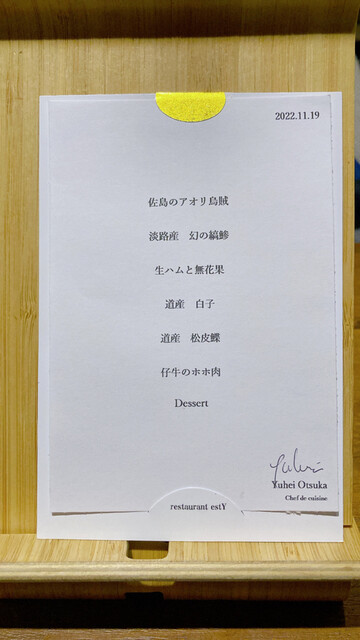 2022.11.19
佐島のアオリ烏賊
淡路産　幻の縞鯵
生ハムと無花果
道産　白子
道産　松皮鰈
仔牛のホホ肉
Dessert
Yuhei
Yuhei Otsuka
Chef de cuisine
restaurant estY